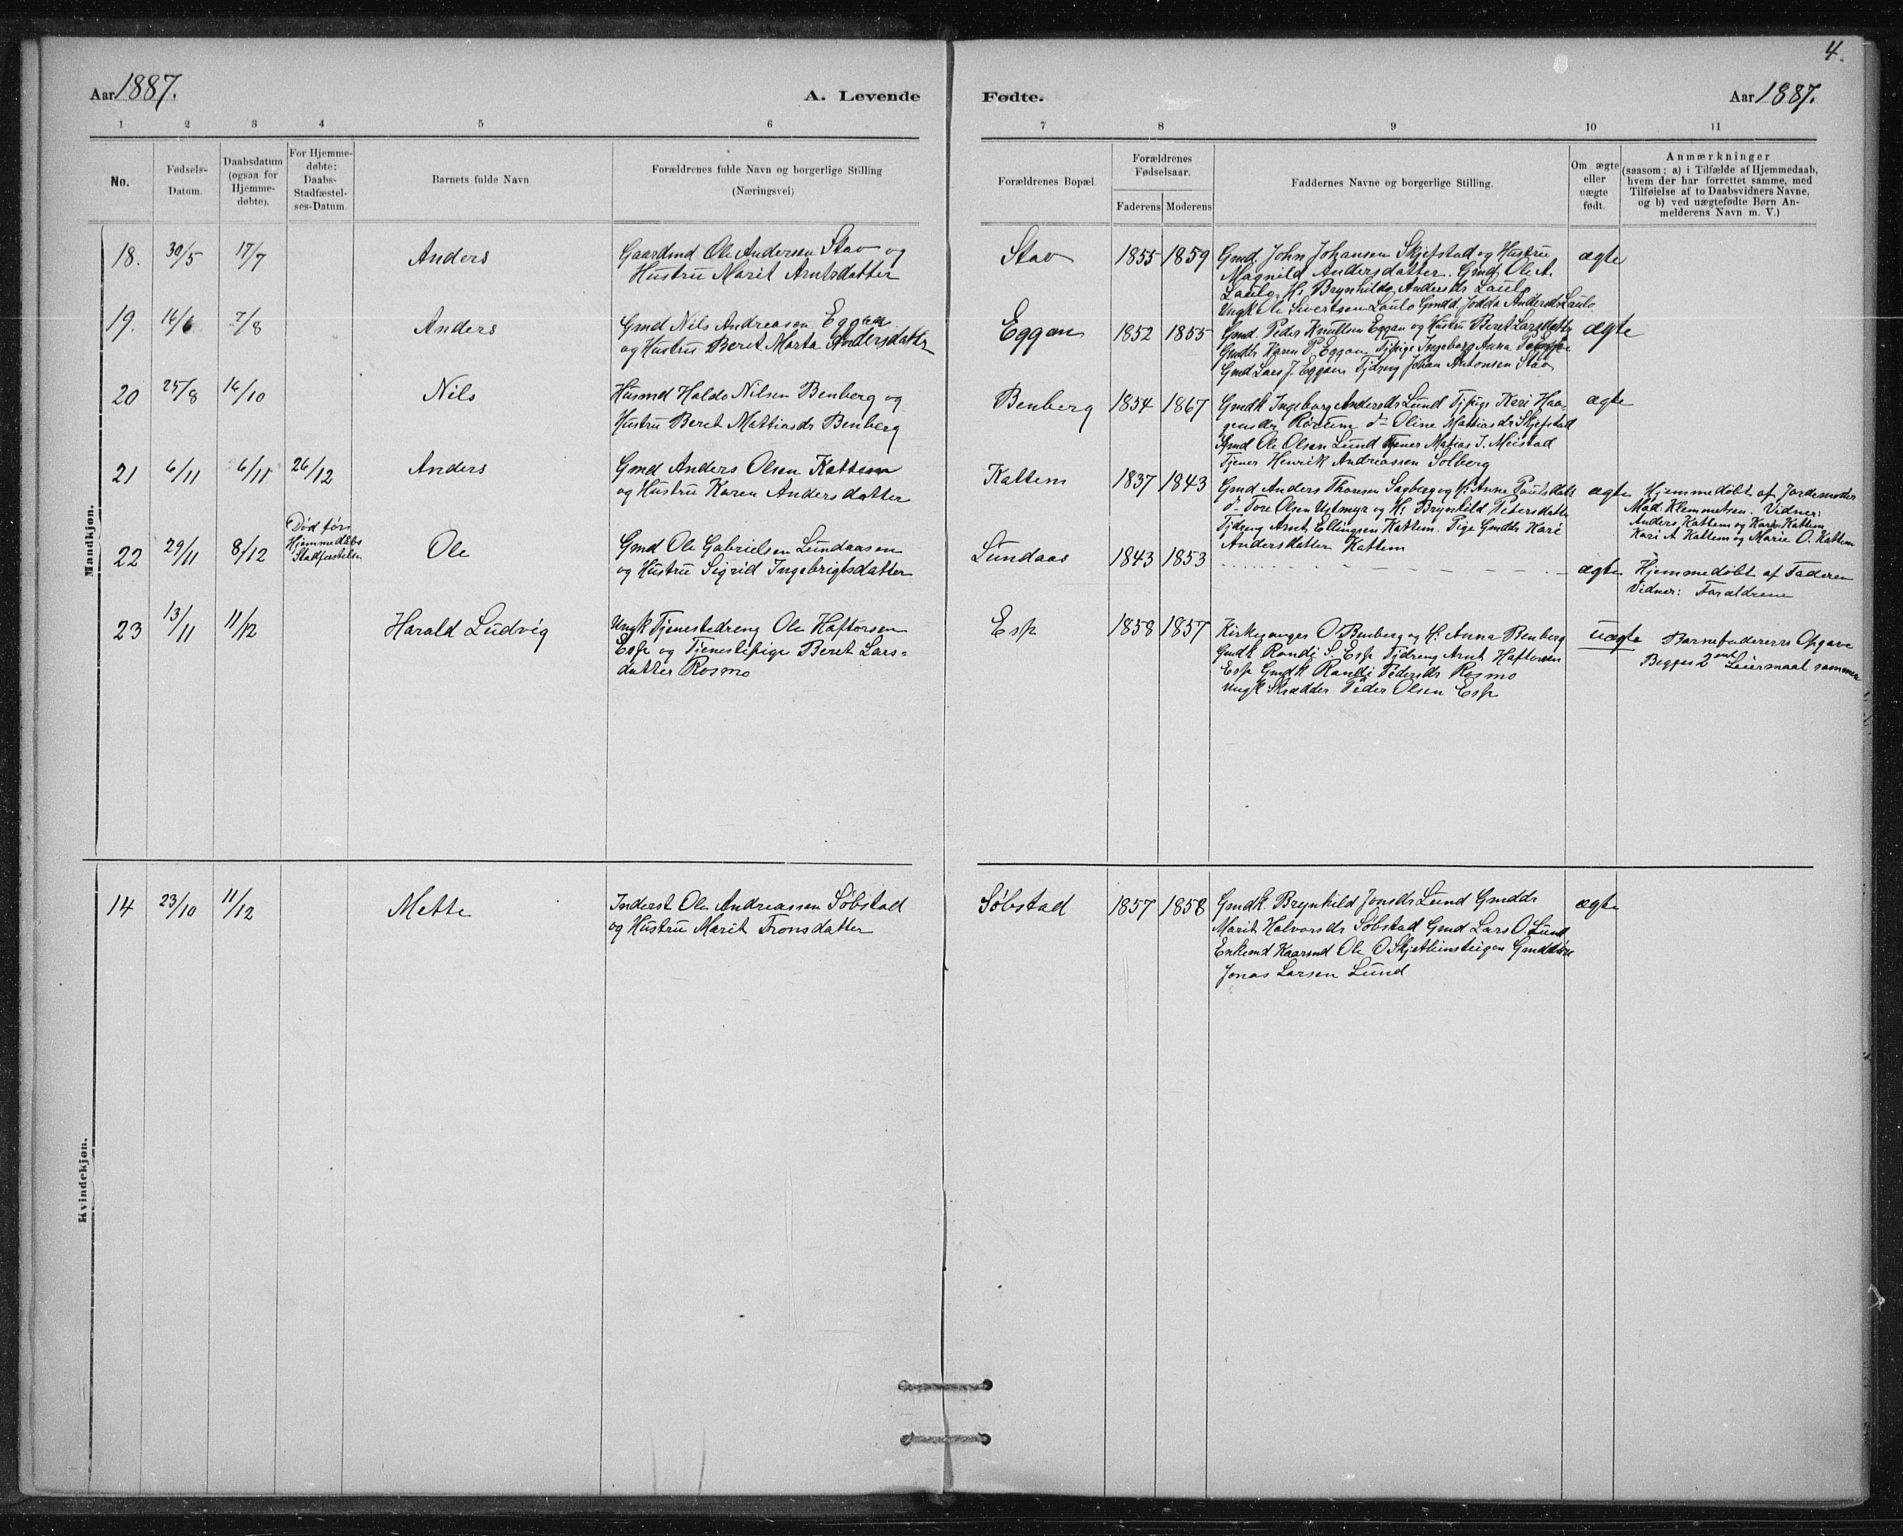 4.
Aar 1887.
A. Levende
Fødte.
Aar 1887.
1 2 3 4 5 6 7 8 9 10 11
No.
Fødsels-
Datum.
Daabsdatum
(ogsaa for
Hjemme-
døbte).
For Hjemme-
døbte:
Daabs-
Stadfæstel-
ses-Datum.
Barnets fulde Navn
Forældrenes fulde Navn og borgerlige Stilling
(Næringsvei)
Forældrenes Bopæl.
Forældrenes
Fødselsaar.
Faderens Moderens
Faddernes Navne og borgerlige Stilling.
Om ægte
eller
uægte
født.
Anmærkninger
(saasom: a) i Tilfælde af Hjemmedaab,
hvem der har forrettet samme, med
Tilføielse af to Daabsvidners Navne,
og b) ved uægtefødte Børn An-
melderens Navn m. V.)
Mandkjøn.
18. 30/5 17/7 Anders
Gaardmd Ole Andersen Stav og
Hustru Marit Arntsdatter
Stav 1855 1859
Gmd John Johansen Skjefstad og Hustru
Magnild Andersdatter. Gmd Ole A.
Laulo, H: Brynhild Andersds Laulo
Ungk Ole Sivertsen Laulo Gmdd Jødda Andersds Laulo
ægte
19. 14/6 7/8 Anders
Gmd Nils Andreasen Eggan
og Hustru Beret Marta Andersdatter
Eggan 1852 1855
Gmd. Peder Knudsen Eggan og Hustru Beret Larsdatter
Gmdds Karen P. Eggan Tjpige Ingeborg Anna
Gmd Lars J. Eggan Tjdreng Johan Antonsen Stav
ægte
20 25/8 16/10 Nils
Husmd Haldo Nilsen Benberg og
Hustru Beret Mattiasds Benberg
Benberg 1854 1867
Gmdk Ingeborg Andersds Lund Tjpige Kari Haa-
gensds Röstum do Oline Mattiasds Skjefstad
Gmd Ole Olsen Lund Tjener Matias J. Meistad
Tjener Henrik Andreassen Solberg
ægte
21 6/11 6/11 26/12 Anders
Gmd Anders Olsen Kattem
og Hustru Karen Andersdatter
Kattem 1837 1843
Gmd Anders Thoresen Sagberg og H: Anne Poulsdatr
do Tore Olsen Ustmyr og H: Brynhild Pedersdatter
Tjdreng Arnt Ellingsen Kattem. Pige Gmdds Kari
Andersdatter Kattem
ægte
Hjemmedøbt af Jordemoder
Mad. Klemmetsen. Vidner:
Anders Kattem og Karen Kattem
Kari A Kattem og Marie O. Kattem
22 29/11 8/12
Död för
Hjemmedaabs
Stadfæstelsen
Ole
Gmd Ole Gabrielsen Lundaasen
og Hustru Sigrid Ingebrigtsdatter
Lundaas 1843 1853
ægte
Hjemmedøbt af Faderen
Vidner: Forældrene
23 13/11 11/12 Harald Ludvig
Ungk Tjenestedreng Ole Haftorsen
Esp og Tjenestepige Beret Lars-
datter Rosmo
Esp 1858 1857
Kirkesanger O Benberg og H: Anna Benberg
Gmdk Randi S. Esp Tjdreng Arnt Haftorsen
Esp Gmdk Randi Pedersds Rosmo
Ungk Skrædder Peder Olsen Esp
uægte
Barnefaderens Opgave
Begges 2det Leiermaal sammen
Kvindekjøn.
14 23/10 11/12 Mette
Inderst Ole Andreassen Söbstad
og Hustru Marit Tronsdatter
Söbstad 1857 1858
Gmdk. Brynhild Jonsds Lund Gmdds
Marit Halvorsds Söbstad Gmd Lars O. Lund
Enkemd Kaarmd Ole O Skjetleinsteigen Gmdsön
Jonas Larsen Lund
ægte